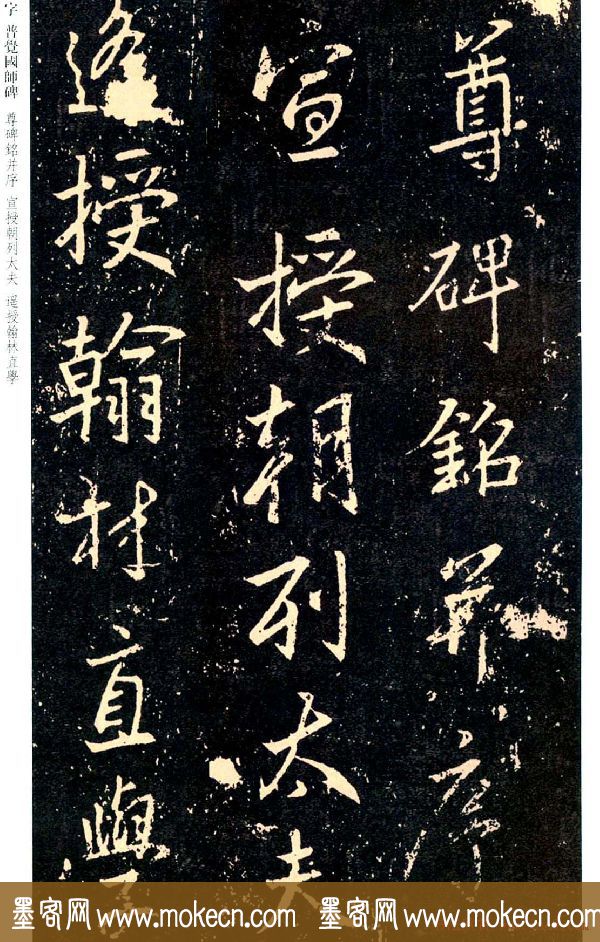 尊碑銘并序
宣授朝列太夫
遥授翰林直學
字 普覺國師碑 尊碑銘并序 宣授朝列太夫 遥授翰林直學
墨客网 www.mokecn.com 墨客网 www.mokecn.com